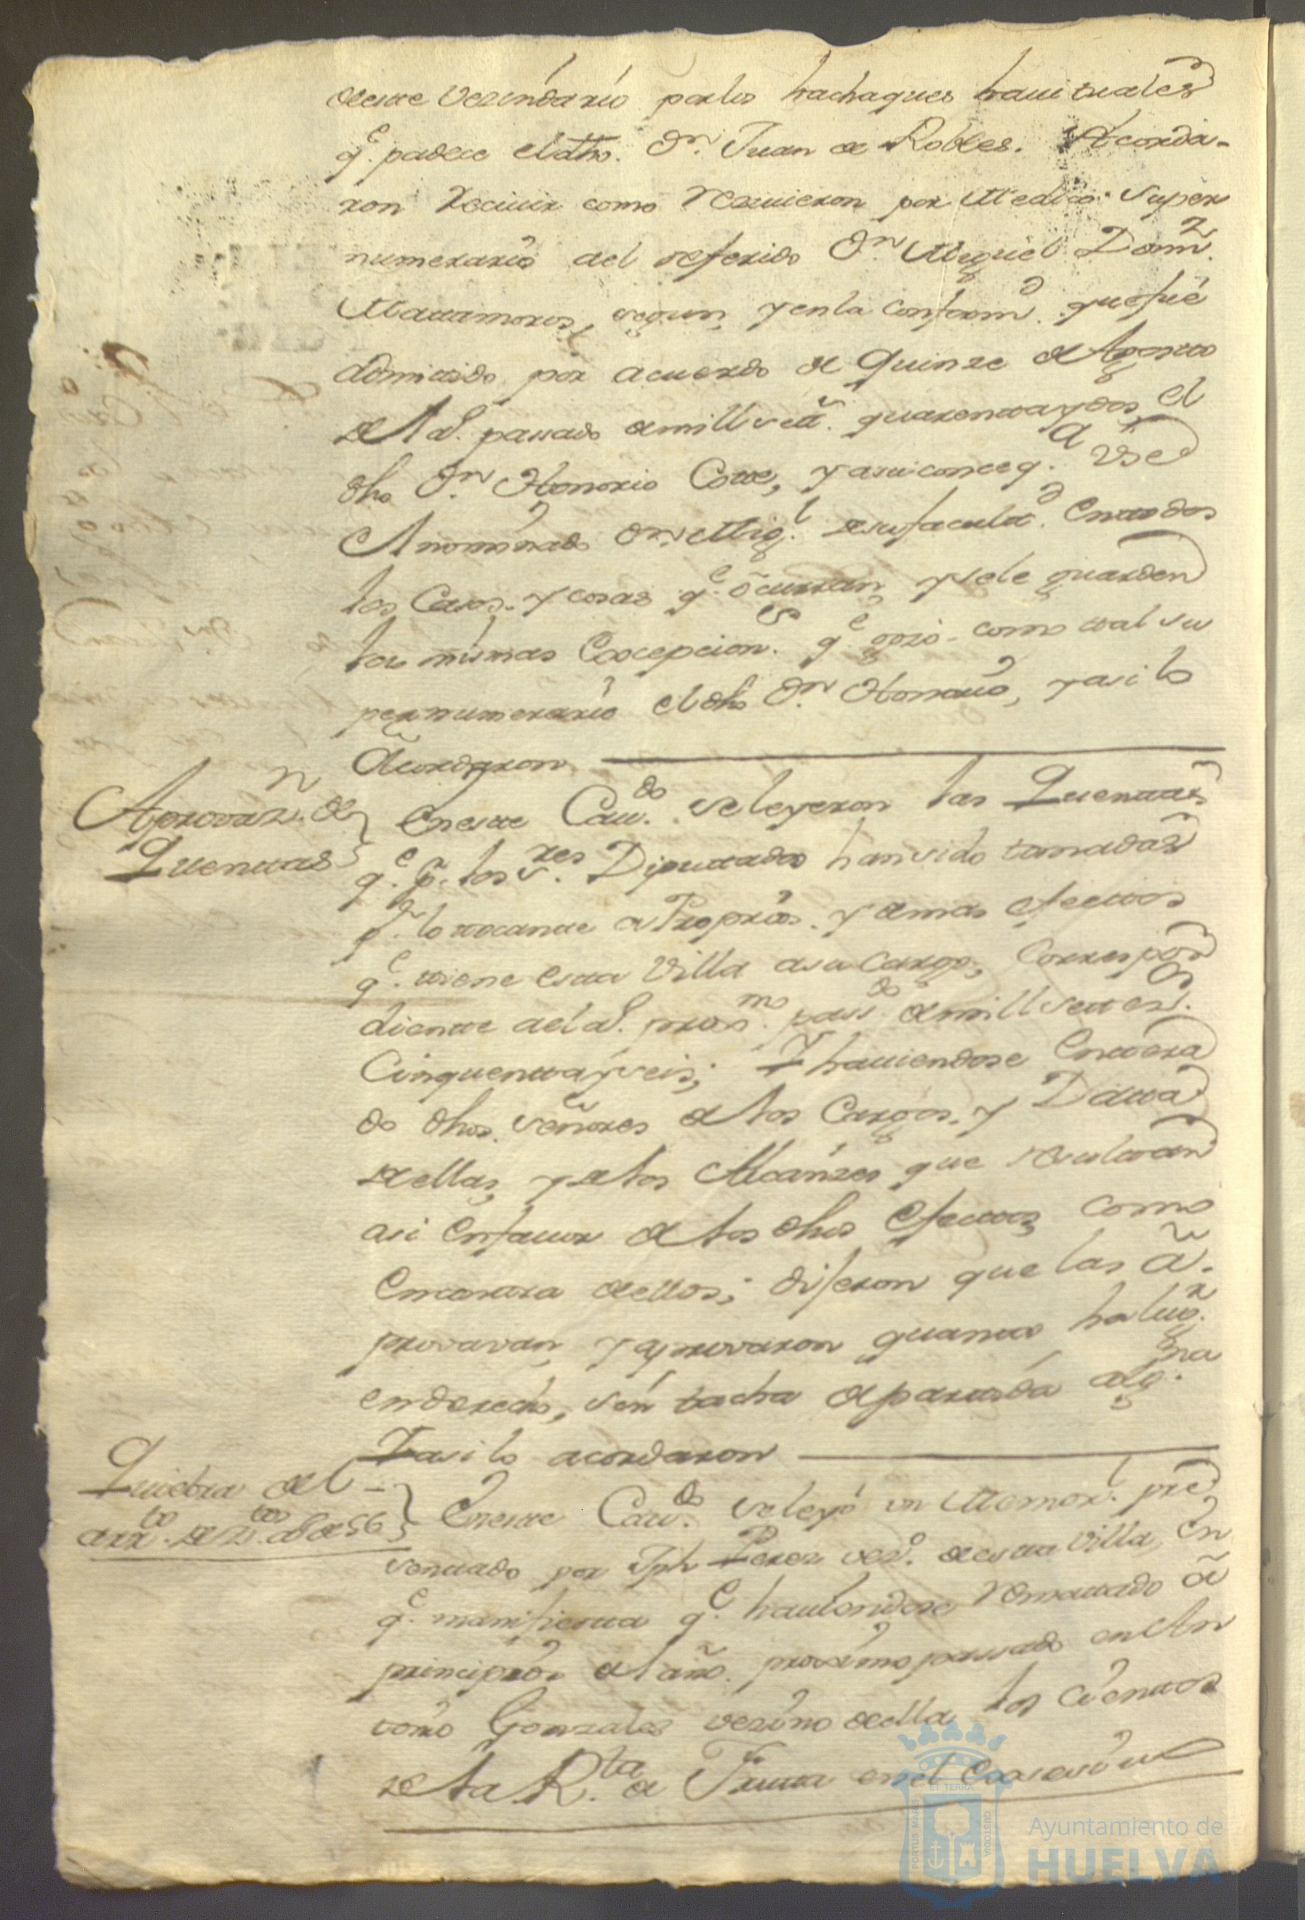 deste Vezindario por los hachaques havituales
q.e padece el dho. Dn. Juan de Robles. Acorda-
ron Recivir como recivieron por Medico super
numerario del referido Dn. Miguel Domz.
Matamoros, segun, y en la conformd. que fué
admitido por acuerdo de Quinze de Agosto
del A.º passado de mill settz. quarenta y dos, el
dho Dn. Honorio Cotte, y a su conseq.a Use
el nominado Dn. Mig.l de su facultad. En todos
los Casos, y cosas q.e ocurran, y se le guarden
las mismas Excepcion.es q.e gozó como tal su
pernumerario el dho Dn. Honorio, y asi lo
Acordaron
Aprovaz.n de
Quentas
En este Cav.do se leyeron las Quentas
q.e p.r los s.res Diputados han sido tomadas
p.r lo tocante a Proprios, y demas efectos
q.e tiene esta Villa a su cargo, Correspon
diente al a.º proxm.mo pass.do de mill setez.s
Cinquenta y seis; Y haviendose Entera
do dhos. señores de los Cargos, y Data
de ellas, y de los Alcanzes que resultan
asi en favor de los dhos Efectos, como
en contra de ellos; dijeron que las A-
provavan, y aprovaron quanto ha lug.r
en derecho, sin tacha de partida alg.na
Y asi lo acordaron
Quiebra del
arr.to de
En este Cav.do se leyó un Memor.l pre
sentado por Jph Perez vez.º de esta Villa, En
q.e manifiesta q.e haviendose Rematado á
principios del año proximo passado en An
tonio Gonzales vezino de ella los cientos
de la R.ta de Fruta en el
PORTUS MARIS ET TERRAE CUSTODIA
Ayuntamiento de
HUELVA